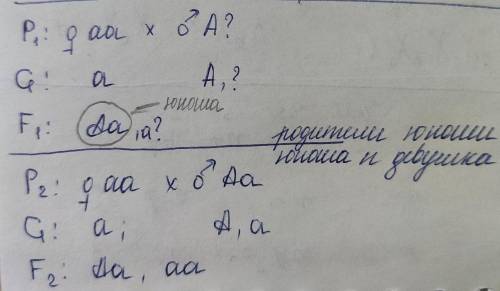 P₁: ♀ aa × ♂ A?
G: a A, ?
юноша
F₁: Aa, a?
родители юноши
юноша и девушка
P₂: ♀ aa × ♂ Aa
G: a; A, a
F₂: Aa, aa